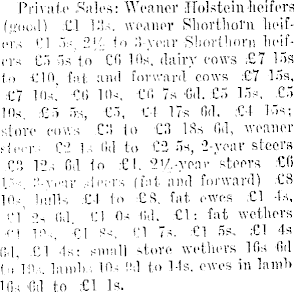 Private Sales: Weaner Holstein heifers
(good) £1 13s, weaner Shorthorn heif-
ers £1 5s, 2½ to 3-year Shorthorn heif-
ers £5 5s to £6 10s, dairy cows £7 15s
to £10, fat and forward cows £7 15s,
£7 10s, £6 10s, £6 7s 6d, £5 15s, £5
10s, £5 5s, £5, £4 17s 6d, £4 15s;
store cows £3 to £3 18s 6d, weaner
steers £2 1s 6d to £2 5s, 2-year steers
£3 12s 6d to £4, 2½-year steers £6
15s, 3-year steers (fat and forward) £8
10s, bulls £4 to £8, fat ewes £1 4s,
£1 2s 6d, £1 0s 6d, £1; fat wethers
£1 8s, £1 7s, £1 5s, £1 4s
6d, £1 4s; small store wethers 16s 6d
to 19s, lambs 10s 9d to 14s, ewes in lamb
16s 6d to £1 1s.